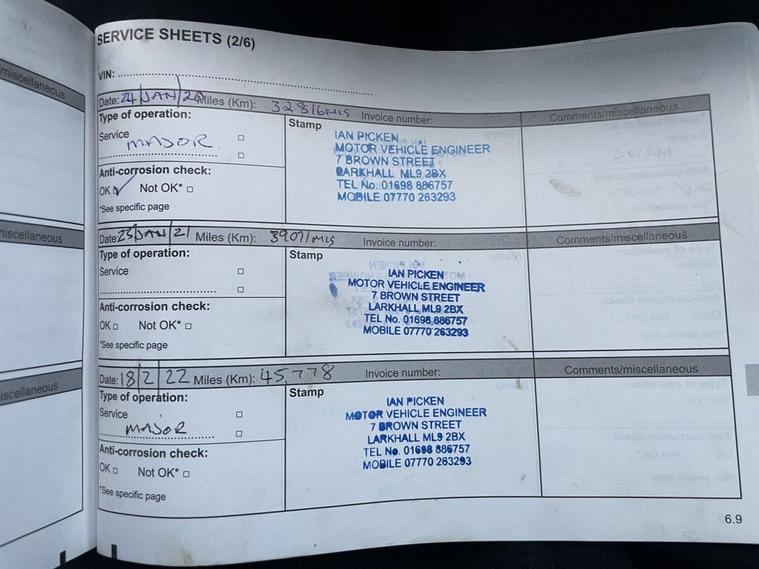 miscellaneous
niscellaneous
iscellaneous
SERVICE SHEETS (2/6)
VIN:
Date: 24 JAN 20 Miles (Km): 32816 MLS Invoice number: Comments/miscellaneous
Type of operation:
Service
MAJOR
Anti-corrosion check:
OK ✓ Not OK* □
*See specific page
Stamp
IAN PICKEN
MOTOR VEHICLE ENGINEER
7 BROWN STREET
LARKHALL ML9 2BX
TEL No. 01698 886757
MOBILE 07770 263293
Date: 23 JAN 21 Miles (Km): 39071 MLS Invoice number: Comments/miscellaneous
Type of operation:
Service
Anti-corrosion check:
OK □ Not OK* □
*See specific page
Stamp
IAN PICKEN
MOTOR VEHICLE ENGINEER
7 BROWN STREET
LARKHALL ML9 2BX
TEL No. 01698 886757
MOBILE 07770 263293
Date: 18 2 22 Miles (Km): 45,778 Invoice number: Comments/miscellaneous
Type of operation:
Service
MAJOR
Anti-corrosion check:
OK □ Not OK* □
*See specific page
Stamp
IAN PICKEN
MOTOR VEHICLE ENGINEER
7 BROWN STREET
LARKHALL ML9 2BX
TEL No. 01698 886757
MOBILE 07770 263293
6.9